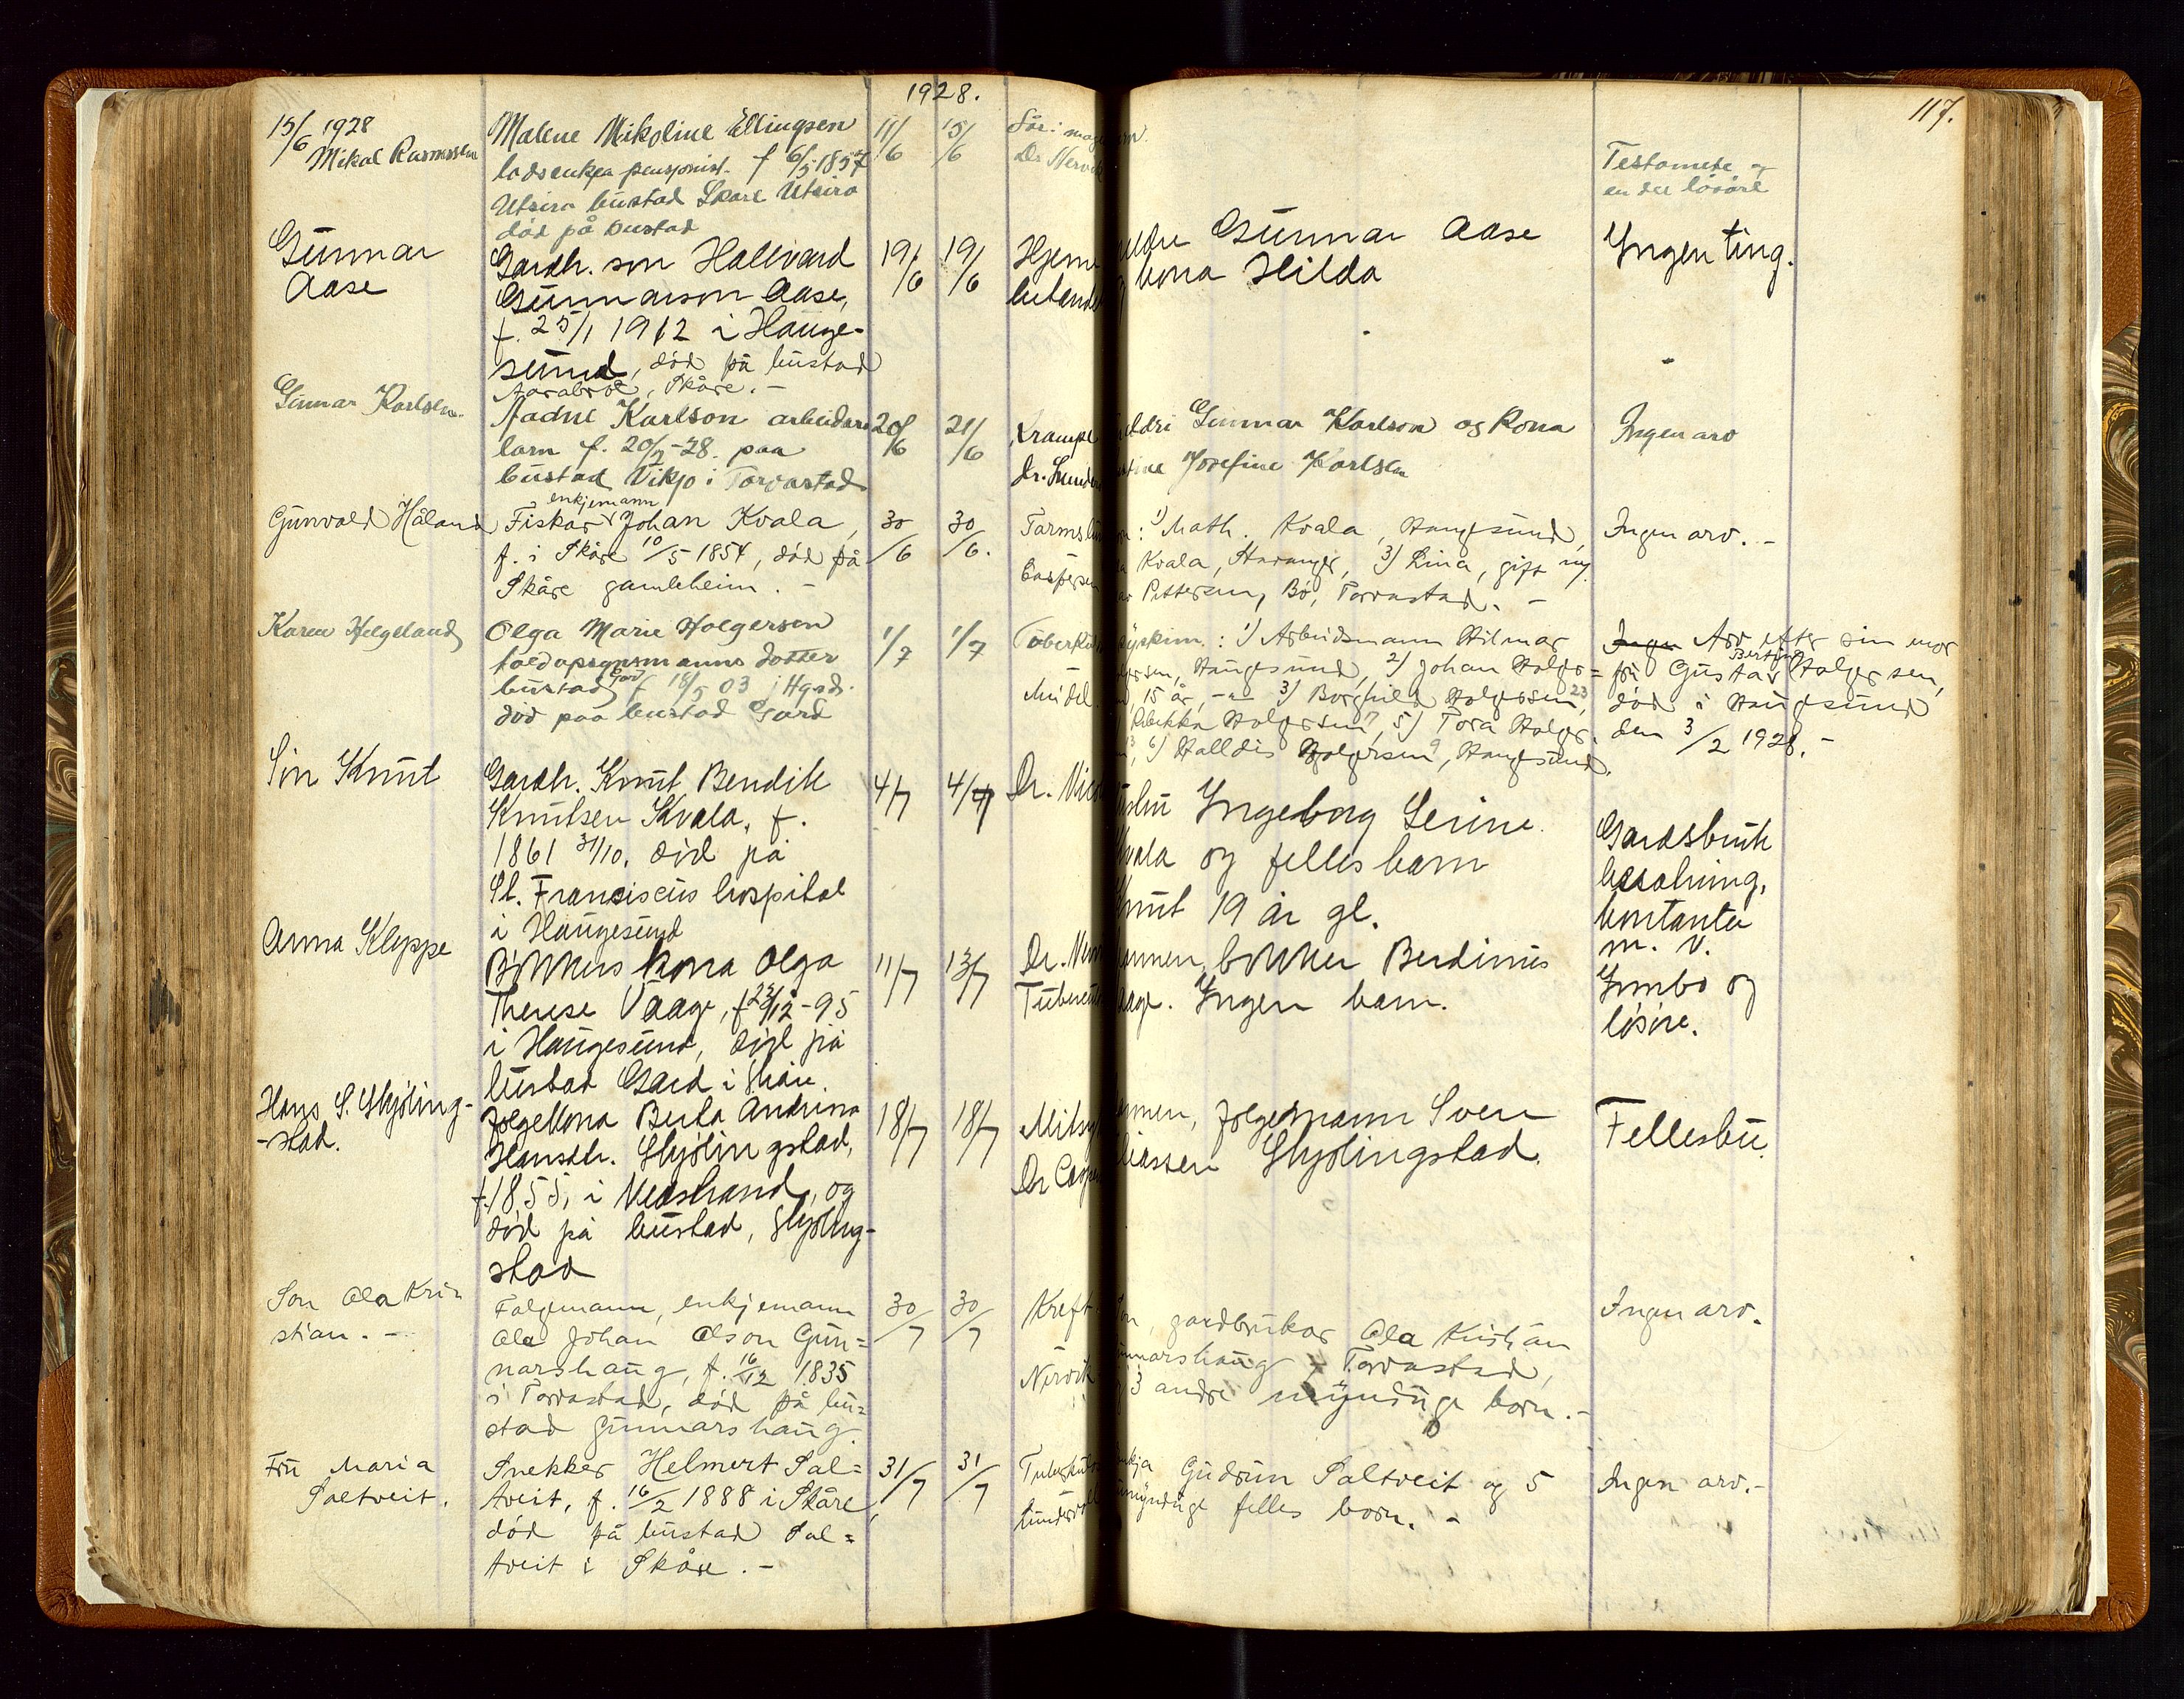 1928.
117.
15/6 1928
Mikal Rasmussen
Malene Nikoline Ellingsen
losenkja pensjonist. f 6/5 1857
Utsira bustad Skare Utsira
död på bustad
11/6
15/6
Dr. Nervik
Testamente og
en del lösöre
Gunnar
Aase
Gardbr. son Hallvard
Gunnarson Aase,
f. 25/1 1912 i Hauge-
sund, död på bustad
Aarabrot, Skåre. -
19/6
19/6
Hjerne
Gunnar Aase
kona Hilda
Ingenting.
Gunnar Karlsen.
Aadne Karlson arbeidar
barn f. 20/2-28. paa
bustad Vikjo i Torvastad
20/6
21/6
Krampe
Dr. Sunder
eldri Gunnar Karlson og Kona
Josefine Karlsen
Ingen arv
Gunvald Håland
enkjemann
Fiskar Johan Kvala,
f. i Skåre 10/5 1854, död på
Skåre gamleheim. -
30/6
30/6.
Caspersen
: 1) Math. Kvala, Haugesund,
Kvala, Stavanger, 3) Lina, gift m/
Pettersen, Bö, Torvastad. -
Ingen arv. -
Karen Helgeland
Olga Marie Holgersen
toldopsynsmanns dotter
bustad Gard f 18/5 03 i Hgsd.
död paa bustad Gard
1/7
1/7
Tuberkul
Meidel.
syskin.: 1) Arbeidsmann Hilmar
gersen, Haugesund, 2) Johan Holger=
15 år, -"- 3) Borghild Holgersen 23,
Rebekka Holgersen 17, 5) Tora Holger-
13, 6) Halldis Holgersen 9, Haugesund.
Ingen Arv efter sin mor
fru Gustav Bertine Holgersen,
död i Haugesund
den 3/2 1928. -
Son Knut
Gardbr. Knut Bendik
Knutsen Kvala, f.
1861 31/10, död på
St. Franciscus hospital
i Haugesund
4/7
4/7
Dr.
Ingeborg Serine
Kvala og felles barn
Knut 19 år gl.
Gardsbruk
besetning,
kontanter
m. v.
Anna Kleppe
Bökkers kona Olga
Therese Vaage, f 23/12-95
i Haugesund, död på
bustad Gard i Skåre.
11/7
13/7
Dr.
Tuberkul
mannen, bökker Berdinius
Vaage. Ingen barn.
Innbo og
lösöre.
Hans S. Skjöling-
-stad.
Folgekona Berta Andrina
Hansdtr. Skjölingstad,
f. 1855, i Nedstrand, og
död på bustad, Skjöling-
stad
18/7
18/7
Dr
mannen, folgemann Sven
Eliassen Skjölingstad.
Fellesbu.
Son Ola Kri
stian. -
Folgemann, enkjemann
Ola Johan Olson Gun=
narshaug, f. 16/12 1835
i Torvastad, död på bu=
stad Gunnarshaug.
30/7
30/7
Kreft
Nervik
Son, gardbrukar Ola Kristian
Gunnarshaug, Torvastad,
3 andre myndige born. -
Ingen arv.
Fru Maria
Saltveit.
Snekker Helmert Sal=
tveit, f. 16/2 1888 i Skåre,
död på bustad Sal=
tveit i Skåre. -
31/7
31/7
Tuberkulo
Enkja Gudrun Saltveit og 5
umyndige felles born. -
Ingen arv. -